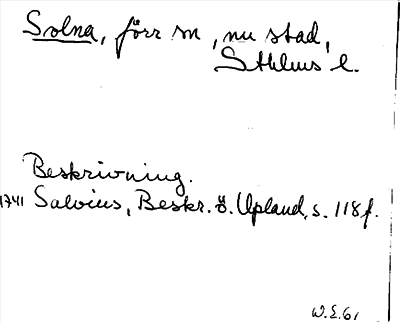 Solna, förr sn, nu stad,
Sthlms l.
Beskrivning.
1741 Salvius, Beskr. ö. Upland, s. 118 f.
W.E.61